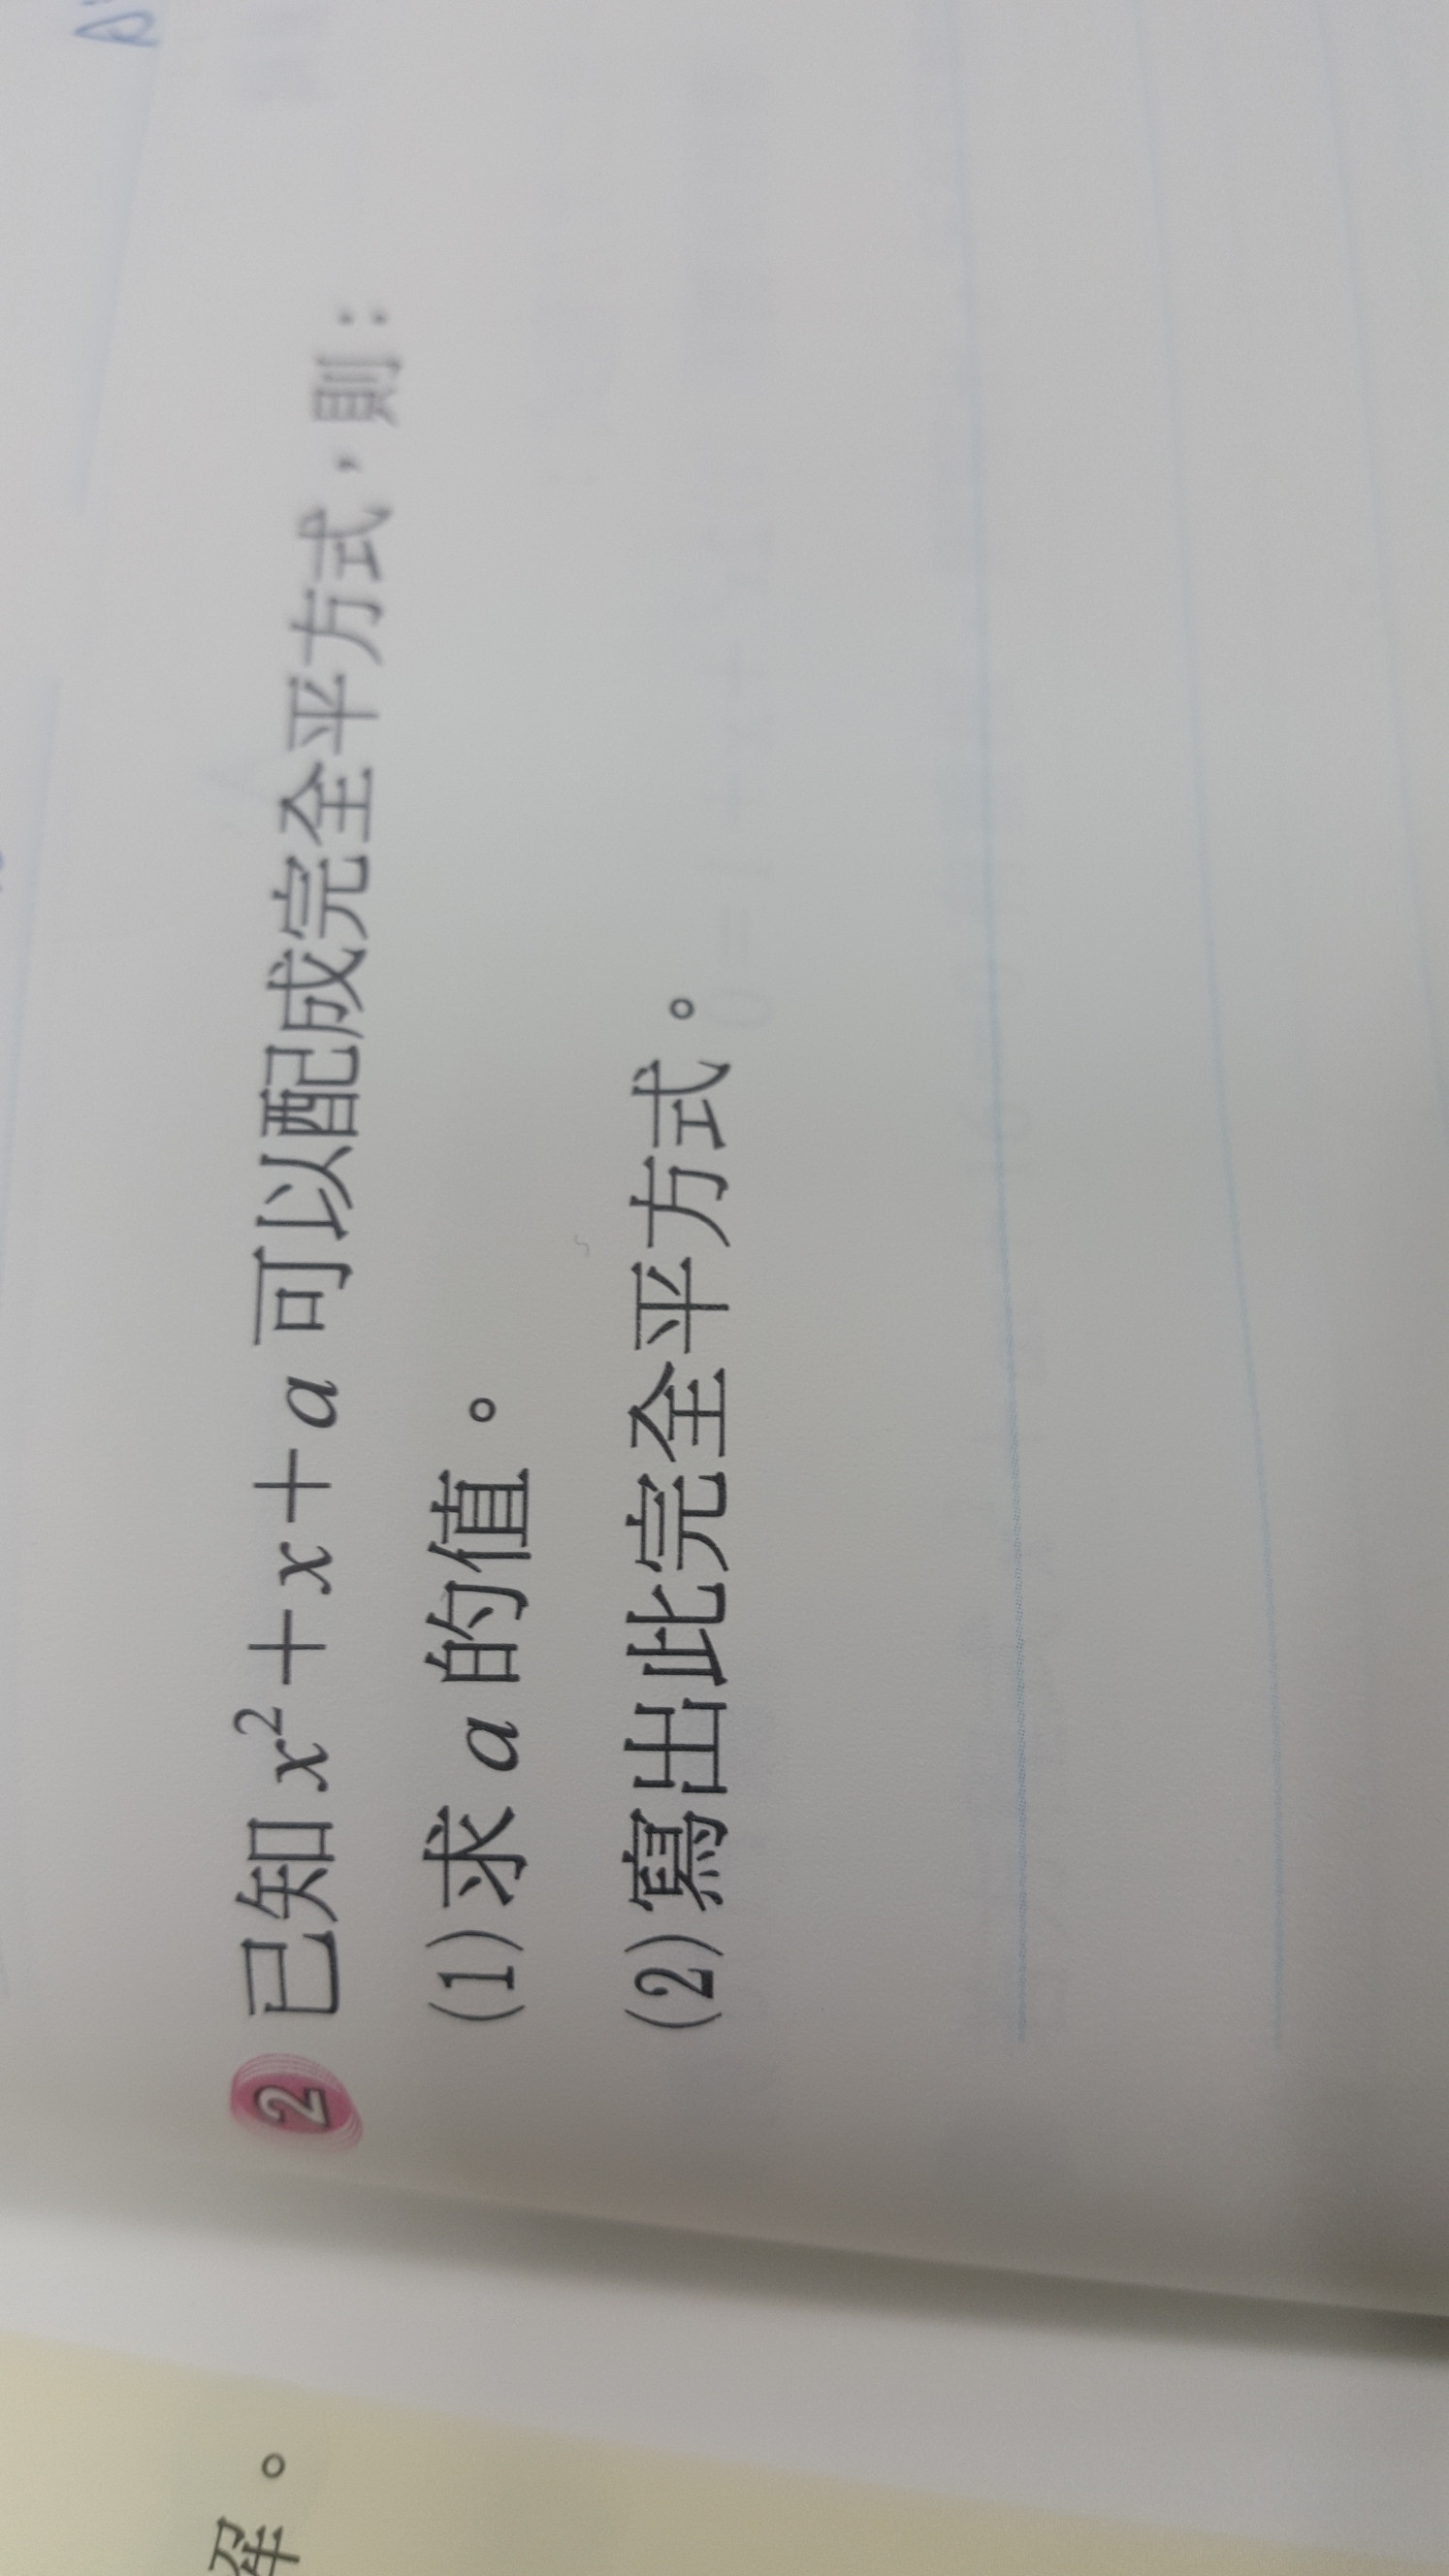 2 已知 x²＋x＋a 可以配成完全平方式，則：
(1) 求 a 的值。
(2) 寫出此完全平方式。